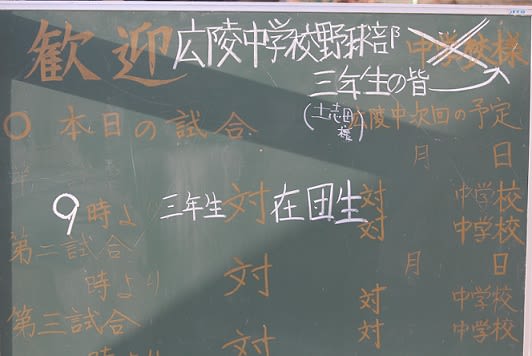 歓迎 広陵中学校野球部 中学校様
三年生の皆
○ 本日の試合 広陵中次回の予定
月 日
9時より 三年生 対 在団生 対 中学校
対 中学校
第二試合 月 日
時より 対 対 中学校
第三試合 対 中学校
時より 対